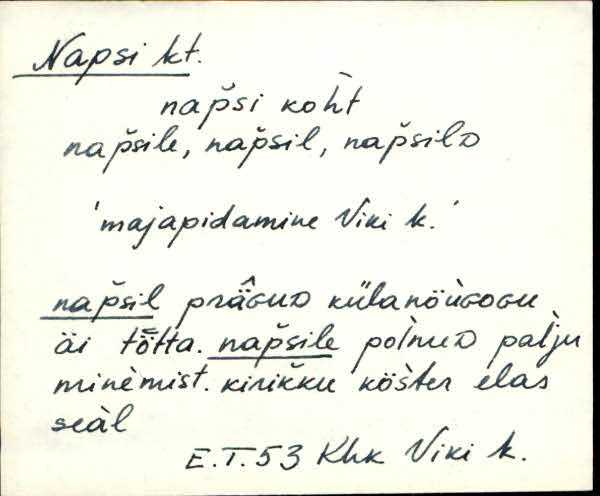 Napsi kt.
nap̆si koh̀t
nap̆sile, nap̆sil, nap̆silᴅ
'majapidamine Viki k.'
nap̆sil prä̂ɢuᴅ külanöùɢoɢu
äi tō̆tta. nap̆sile pol̀nuᴅ pal̀ju
minèmist. kirik̆ku kös̀ter elas
seàl
E.T.53 Khk Viki k.